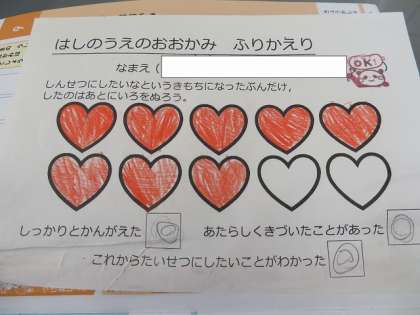 はしのうえのおおかみ ふりかえり
なまえ(
OK!
しんせつにしたいなというきもちになったぶんだけ,
したのはあとにいろをぬろう。
しっかりとかんがえた
あたらしくきづいたことがあった
これからたいせつにしたいことがわかった